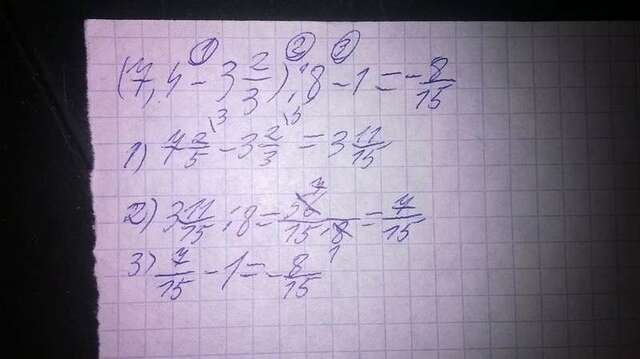 ① ② ③
(7,4 - 3 2/3) : 8 - 1 = - 8/15
1) 7 2/5 \3 - 3 2/3 \5 = 3 11/15
2) 3 11/15 : 8 = 56 7 / 15 · 8 1 = 7/15
3) 7/15 - 1 = - 8/15